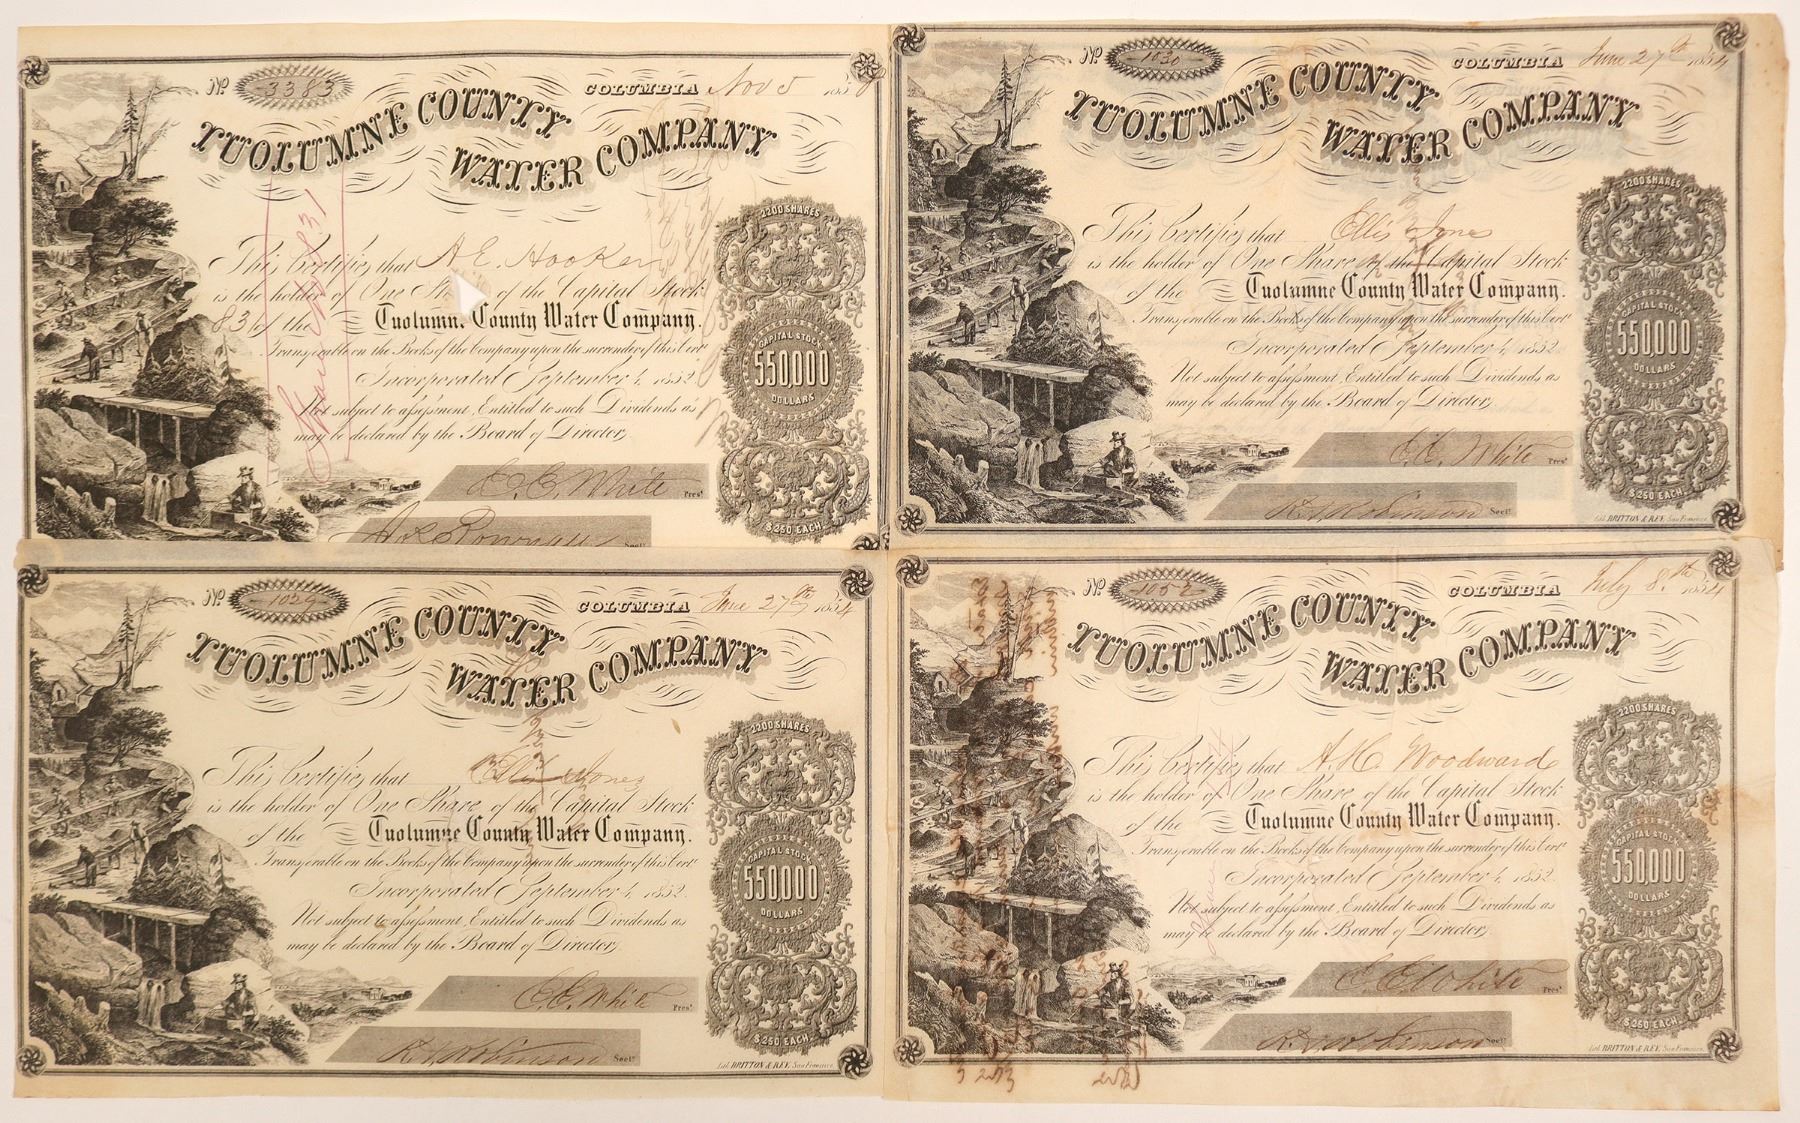 No 3383 COLUMBIA Nov 8 1858
TUOLUMNE COUNTY
WATER COMPANY
2200 SHARES
This Certifies that A. E. Hooker
is the holder of One of the Capital Stock
of the Tuolumne County Water Company.
Transferable on the Books of the Company upon the surrender of this Cert.
Incorporated September 4, 1852.
Not subject to assessment, Entitled to such Dividends as
may be declared by the Board of Directors
CAPITAL STOCK
550,000
DOLLARS
$250 EACH.
E. E. White Prest.
Sect.
No 1030 COLUMBIA June 27th 1854
TUOLUMNE COUNTY
WATER COMPANY
2200 SHARES
This Certifies that Ellis Jones
is the holder of One Share of the Capital Stock
of the Tuolumne County Water Company.
Transferable on the Books of the Company upon the surrender of this Cert.
Incorporated September 4, 1852.
Not subject to assessment, Entitled to such Dividends as
may be declared by the Board of Directors
CAPITAL STOCK
550,000
DOLLARS
$250 EACH.
E. E. White Prest.
Robinson Sect.
Lith. BRITTON & REY. San Francisco
No 1029 COLUMBIA June 27th 1854
TUOLUMNE COUNTY
WATER COMPANY
2200 SHARES
This Certifies that Ellis Jones
is the holder of One Share of the Capital Stock
of the Tuolumne County Water Company.
Transferable on the Books of the Company upon the surrender of this Cert.
Incorporated September 4, 1852.
Not subject to assessment, Entitled to such Dividends as
may be declared by the Board of Directors
CAPITAL STOCK
550,000
DOLLARS
$250 EACH.
E. E. White Prest.
Robinson Sect.
Lith. BRITTON & REY. San Francisco
No 1052 COLUMBIA July 8th 1854
TUOLUMNE COUNTY
WATER COMPANY
2200 SHARES
This Certifies that A. H. Woodward
is the holder of One Share of the Capital Stock
of the Tuolumne County Water Company.
Transferable on the Books of the Company upon the surrender of this Cert.
Incorporated September 4, 1852.
Not subject to assessment, Entitled to such Dividends as
may be declared by the Board of Directors
CAPITAL STOCK
550,000
DOLLARS
$250 EACH.
E. E. White Prest.
Robinson Sect.
Lith. BRITTON & REY. San Francisco